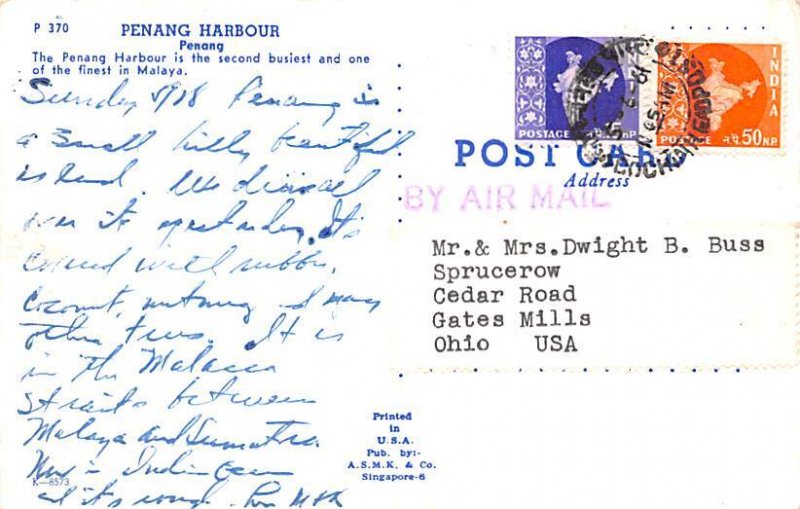 P 370
PENANG HARBOUR
Penang
The Penang Harbour is the second busiest and one
of the finest in Malaya.
Sunday Penang is
a small hilly beautiful
island. We drove all
over it yesterday. It's
covered with rubber,
coconut, nutmeg & many
other trees. It is
in the Malacca
straits between
Malaya and Sumatra.
Now in Indian Ocean
and it's rough.
K-8573
Printed
in
U.S.A.
Pub. by:-
A.S.M.K. & Co.
Singapore-6
POSTAGE N.P.
INDIA
POSTAGE न.पै. 50 N.P.
COCHIN HEAD POST
POST CARD
Address
BY AIR MAIL
Mr.& Mrs.Dwight B. Buss
Sprucerow
Cedar Road
Gates Mills
Ohio USA